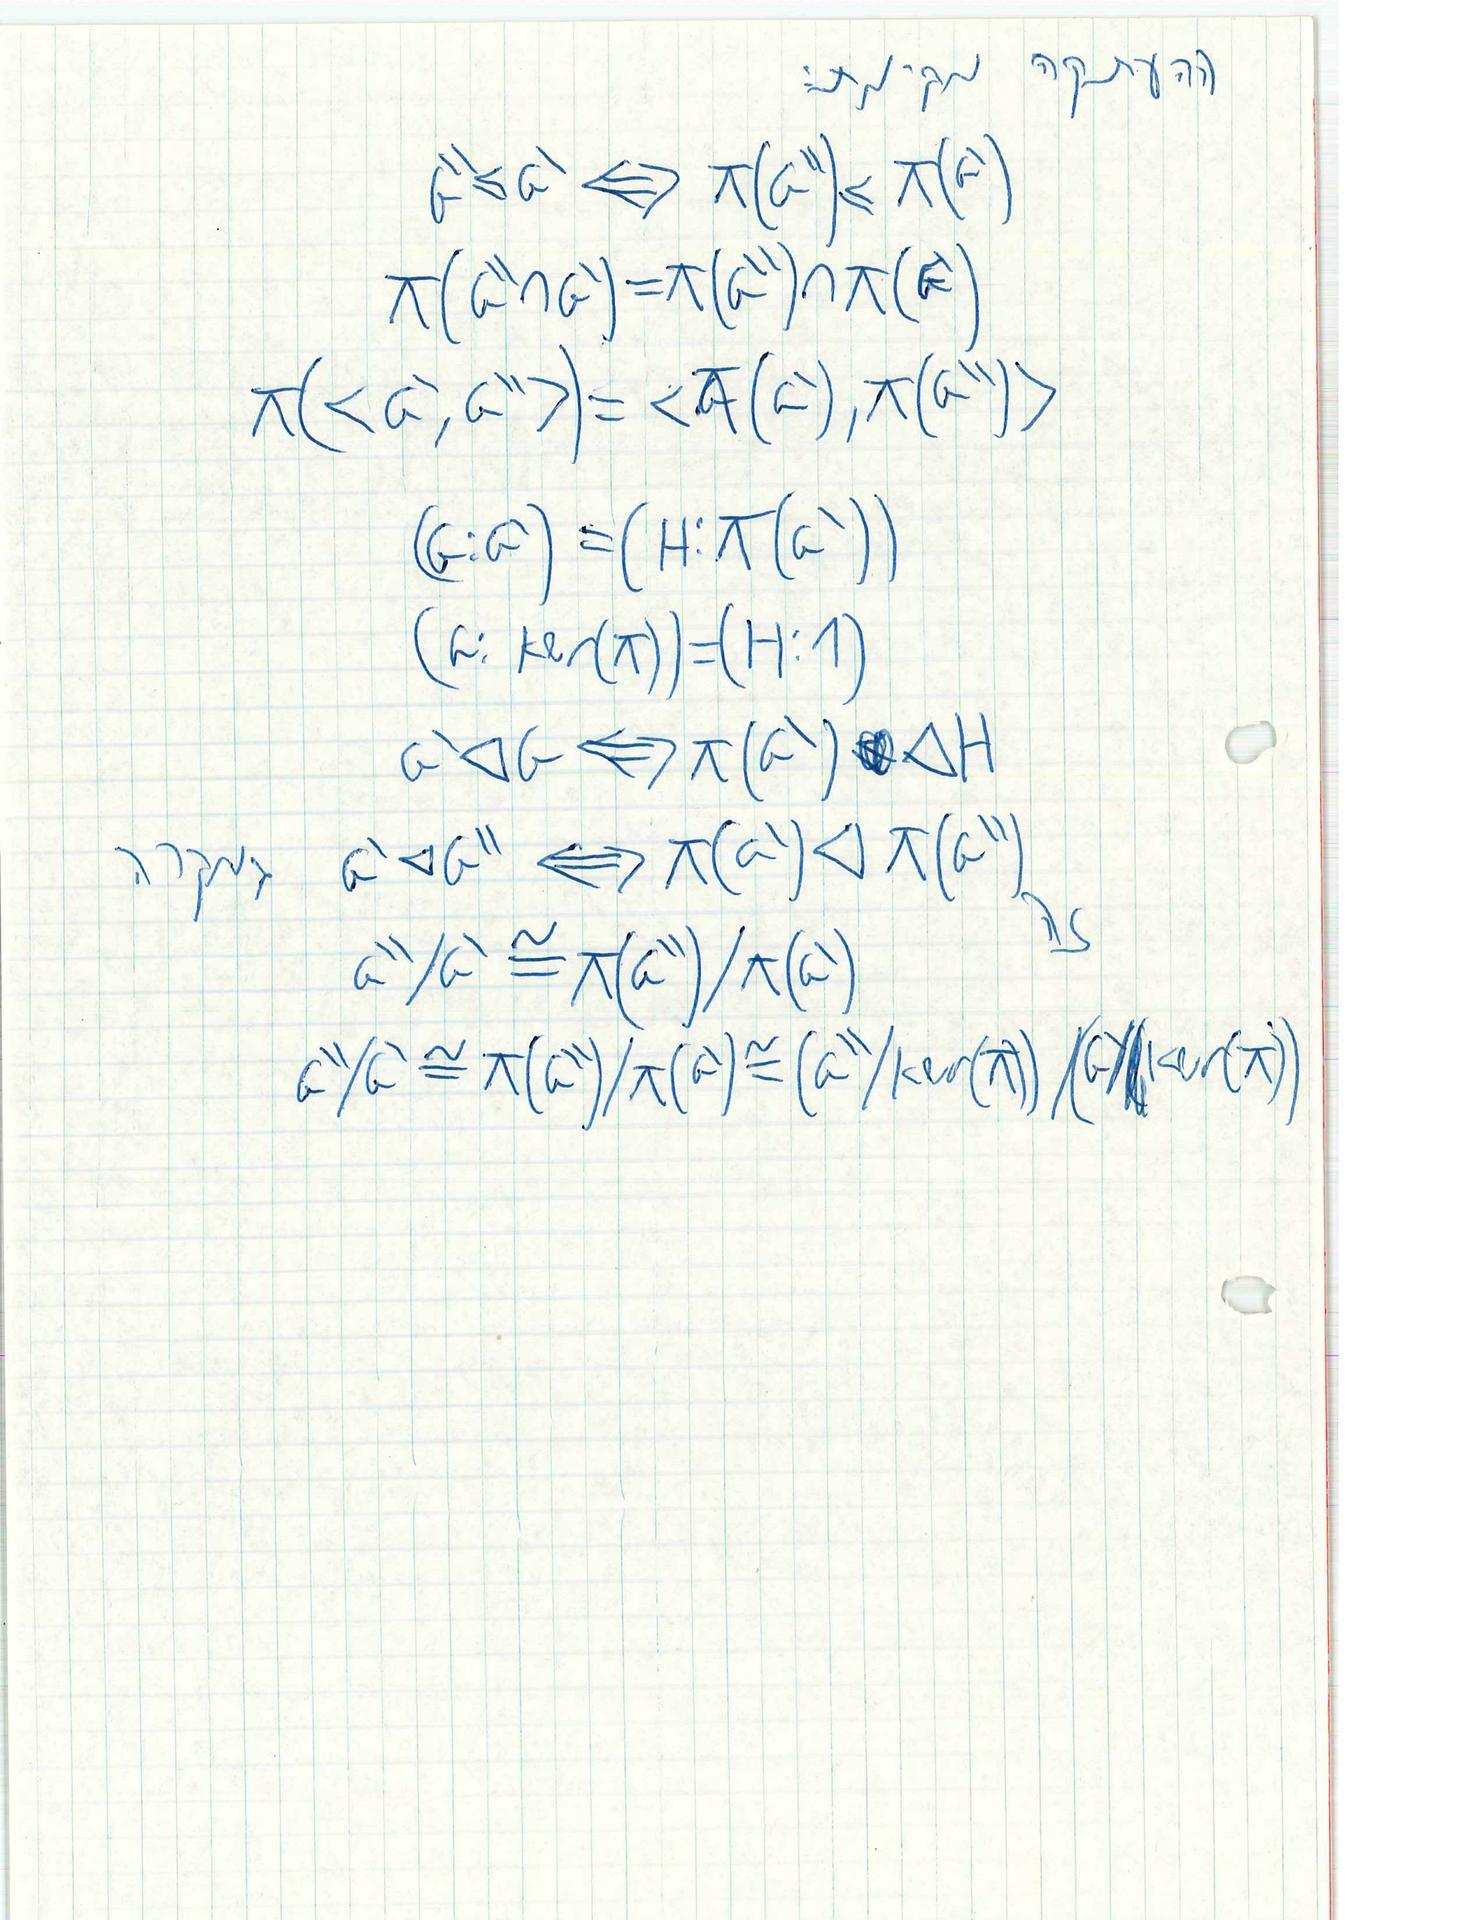 ההעתקה מקיימת:
G''≤G' ⟺ π(G'')≤π(G')
π(G''∩G')=π(G'')∩π(G')
π(<G',G''>)=<π(G'),π(G'')>
(G:G')=(H:π(G'))
(G:ker(π))=(H:1)
G'◁G ⟺ π(G')◁H
G'◁G'' ⟺ π(G')◁π(G'') במקרה
זה
G''/G'≅π(G'')/π(G')
G''/G'≅π(G'')/π(G')≅(G''/ker(π))/(G'/ker(π))